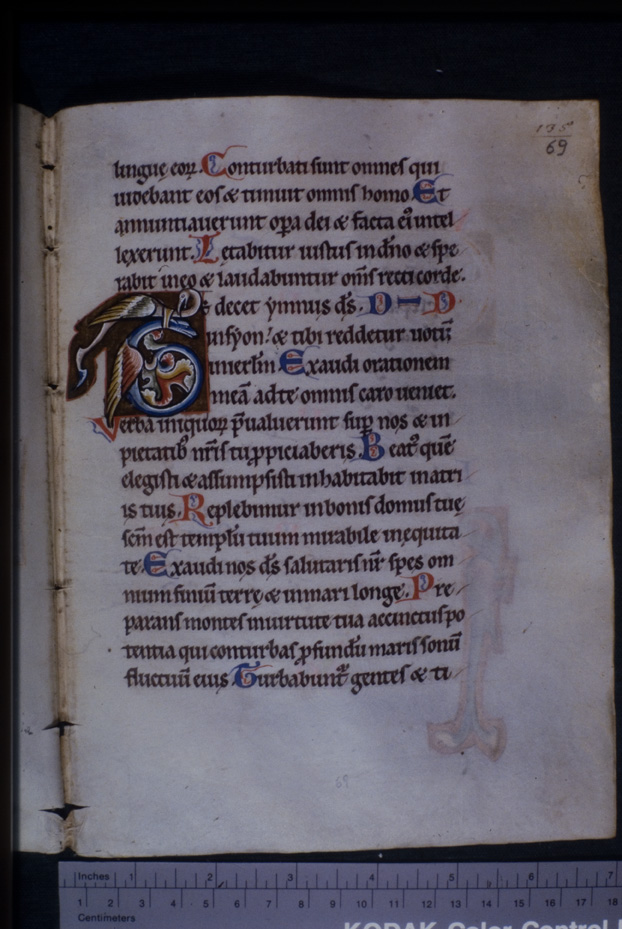 135
69
lingue eoꝝ. Conturbati sunt omnes qui
uidebant eos & timuit omnis homo Et
annuntiauerunt opa dei & facta ei᾽ intel
lexerunt. Letabitur iustus in dn̄o & spe
rabit in eo & laudabuntur om̄s recti corde.
Te decet ẏmnus d̄s.
in sẏon: & tibi reddetur uotū
in ierl̄m Exaudi orationem
meā ad te omnis caro ueniet.
Verba iniquoꝝ p̄ualuerunt sup nos & in
pietatib᾽ nr̄is tu ꝓpiciaberis. Beat᾽ quē
elegisti & assumpsisti inhabitabit in atri
is tuis. Replebimur in bonis domus tuę
scm̄ est templū tuum mirabile in equita
te. Exaudi nos d̄s salutaris nr̄ spes om
nium finiū terrę & in mari longe. Pre
parans montes in uirtute tua accinctus po
tentia qui conturbas ꝓfundū maris sonū
fluctuū eius Turbabunt᾽ gentes & ti
69
Inches 1 2 3 4 5 6 7
1 2 3 4 5 6 7 8 9 10 11 12 13 14 15 16 17 18
Centimetres
KODAK Color Control